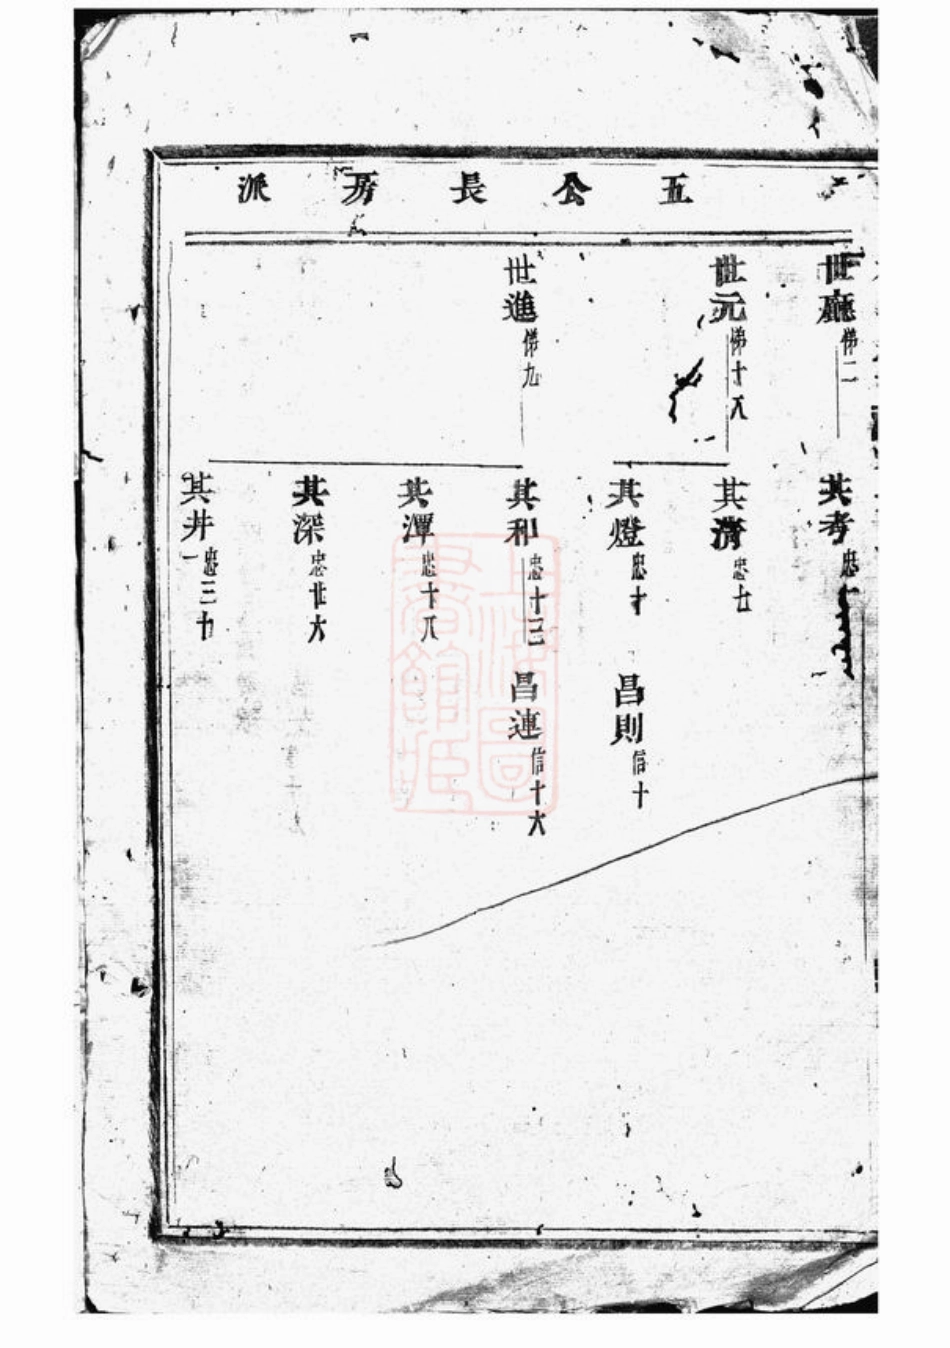 五公長房派
世廳 悌二
其考 忠
世元 悌十八
其清 忠七
其燈 忠十
昌則 信十
世進 悌九
其和 忠十三
昌連 信十六
其潭 忠十八
其深 忠廿六
其井 忠三十一
上海圖書館藏